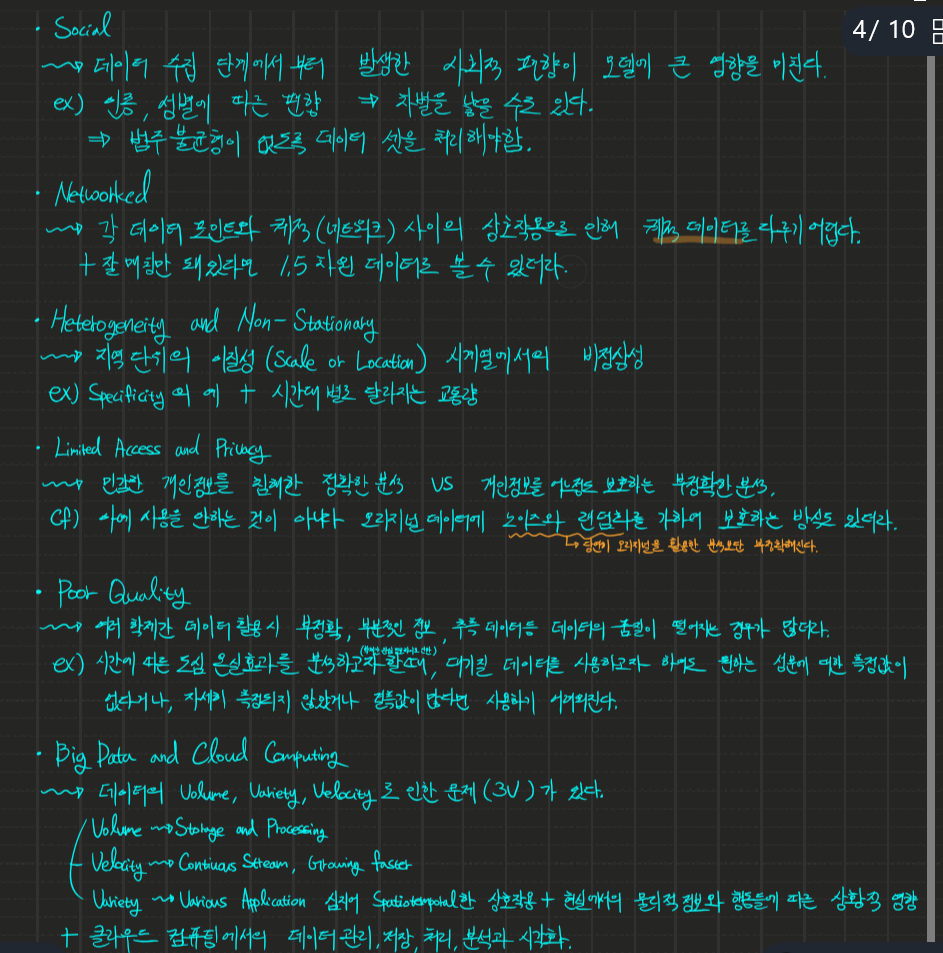 4/ 10
· Social
~~> 데이터 수집 단계에서 부터 발생한 사회적 편향이 모델에 큰 영향을 미친다.
ex) 인종, 성별에 따른 편향 ⇒ 차별을 낳을 수도 있다.
⇒ 범주 불균형이 없도록 데이터 셋을 처리해야함.
· Networked
~~> 각 데이터 포인트와 궤적(네트워크) 사이의 상호작용으로 인해 궤적 데이터를 다루기 어렵다.
+ 잘 매칭만 돼있다면 1.5 차원 데이터로 볼 수 있더라.
· Heterogeneity and Non-Stationary
~~> 지역 단위의 이질성 (Scale or Location) 시계열에서의 비정상성
ex) Specificity의 예 + 시간대 별로 달라지는 교통량
· Limited Access and Privacy
~~> 민감한 개인정보를 침해한 정확한 분석 VS 개인정보를 어느정도 보호하는 부정확한 분석.
cf) 아예 사용을 안하는 것이 아니라 오리지널 데이터에 노이즈와 랜덤화를 가하여 보호하는 방식도 있더라.
↳ 당연히 오리지널을 활용한 분석보단 부정확해진다.
· Poor Quality
~~> 여러 학제간 데이터 활용 시 부정확, 부분적인 정보, 추측 데이터등 데이터의 품질이 떨어지는 경우가 많더라.
ex) 시간에 따른 도심 온실효과를 분석하고자 할때, 대기질 데이터를 사용하고자 하여도 원하는 성분에 대한 측정값이
없다거나, 자세히 측정되지 않았거나 결측값이 많다면 사용하기 어려워진다.
· Big Data and Cloud Computing
~~> 데이터의 Volume, Variety, Velocity로 인한 문제(3V)가 있다.
Volume ~> Storage and Processing
Velocity ~> Continuous Stream, Growing faster
Variety ~> Various Application 심지어 Spatiotemporal한 상호작용 + 현실에서의 물리적 정보와 행동들에 따른 상황적 영향
+ 클라우드 컴퓨팅에서의 데이터 관리, 저장, 처리, 분석과 시각화.